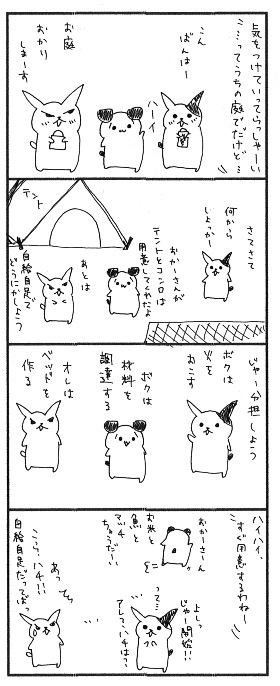 気をつけていってらっしゃーい
……ってうちの庭でだけど…
こん
ばんはー
ハーイ
お庭
おかり
しまーす
さてさて
何から
しよっかー
おかーさんが
テントとコンロは
用意してくれたよ
あとは
自給自足で
どうにかしよう
テント
じゃー分担しよう
ボクは
火を
おこす
ボクは
材料を
調達する
オレは
ベッドを
作る
ハイハイ、
すぐ用意するわねー
おかーさーん
お米と
魚と
マッチ
ちょうだーい
よしっ
じゃー開始!!
って…
アレ?ハチは?
あっ
こらーハチ!!
自給自足だってばっ